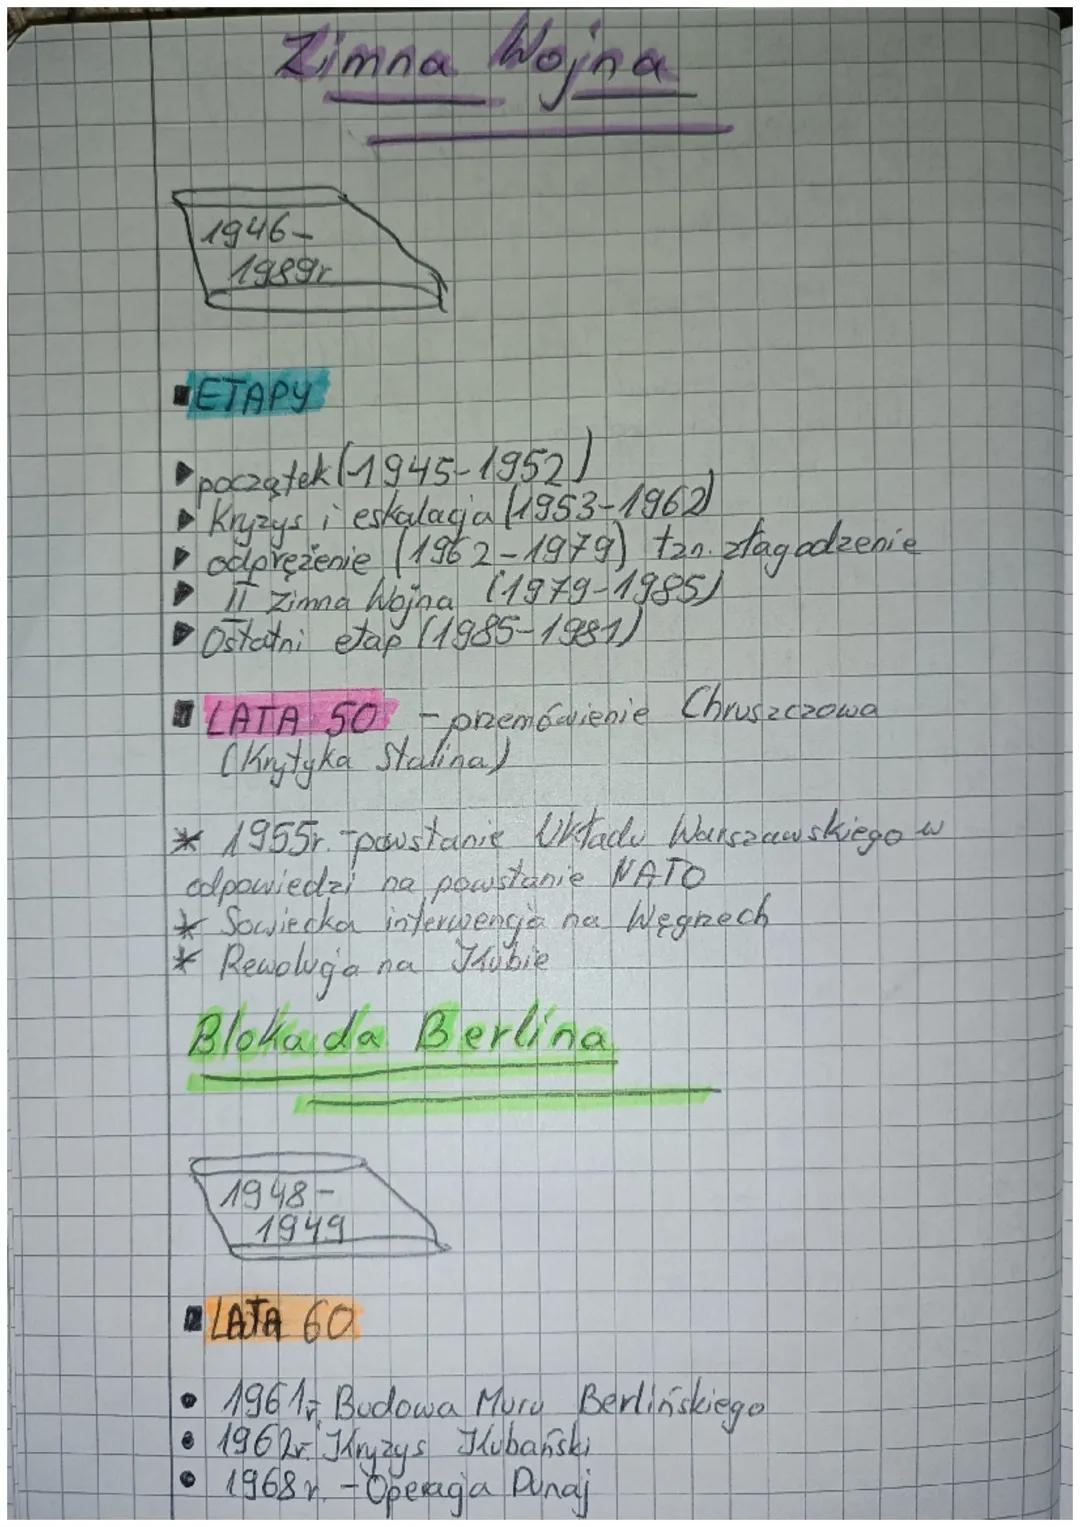 Zimna Wojna
1946-
1989r
ETAPY
początek (-1945-1952)
Kryzys i eskalacja (1953-1962)
odprężenie (1962-1979) tzn. złagodzenie
II Zimna Wojna (1979-1985)
Ostatni etap (1985-1981)
LATA 50 - przemówienie Chruszczowa
(Krytyka Stalina)
* 1955r. -powstanie Układu Warszawskiego w
odpowiedzi na powstanie NATO
* Sowiecka interwencja na Węgrzech
* Rewolucja na Kubie
Blokada Berlina
1948-
1949
LATA 60
1961r. Budowa Muru Berlińskiego
1962r. Kryzys Kubański
1968r. - Operacja Dunaj